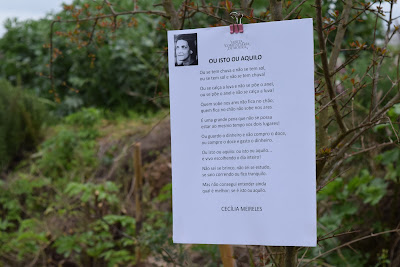 OU ISTO OU AQUILO
Ou se tem chuva e não se tem sol,
ou se tem sol e não se tem chuva!
Ou se calça a luva e não se põe o anel,
ou se põe o anel e não se calça a luva!
Quem sobe nos ares não fica no chão,
quem fica no chão não sobe nos ares.
É uma grande pena que não se possa
estar ao mesmo tempo nos dois lugares!
Ou guardo o dinheiro e não compro o doce,
ou compro o doce e gasto o dinheiro.
Ou isto ou aquilo: ou isto ou aquilo...
e vivo escolhendo o dia inteiro!
Não sei se brinco, não sei se estudo,
se saio correndo ou fico tranquilo.
Mas não consegui entender ainda
qual é melhor: se é isto ou aquilo.
CECÍLIA MEIRELES